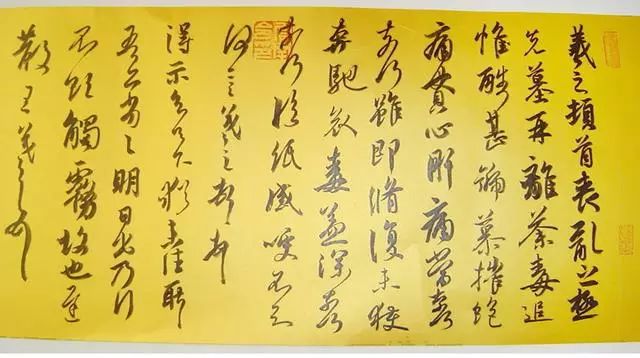 羲之頓首喪亂之極
先墓再離荼毒追
惟酷甚號慕摧絶
痛貫心肝痛當奈
奈何雖即脩復未獲
奔馳哀毒益深奈
奈何臨紙感哽不知
何言羲之頓首頓首
得示知足下猶未佳耿
吾亦劣劣明日出乃行
不欲觸霧故也遲
散王羲之頓首